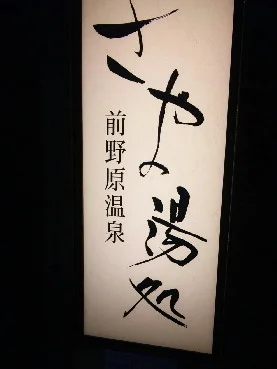 さやの湯処
前野原温泉